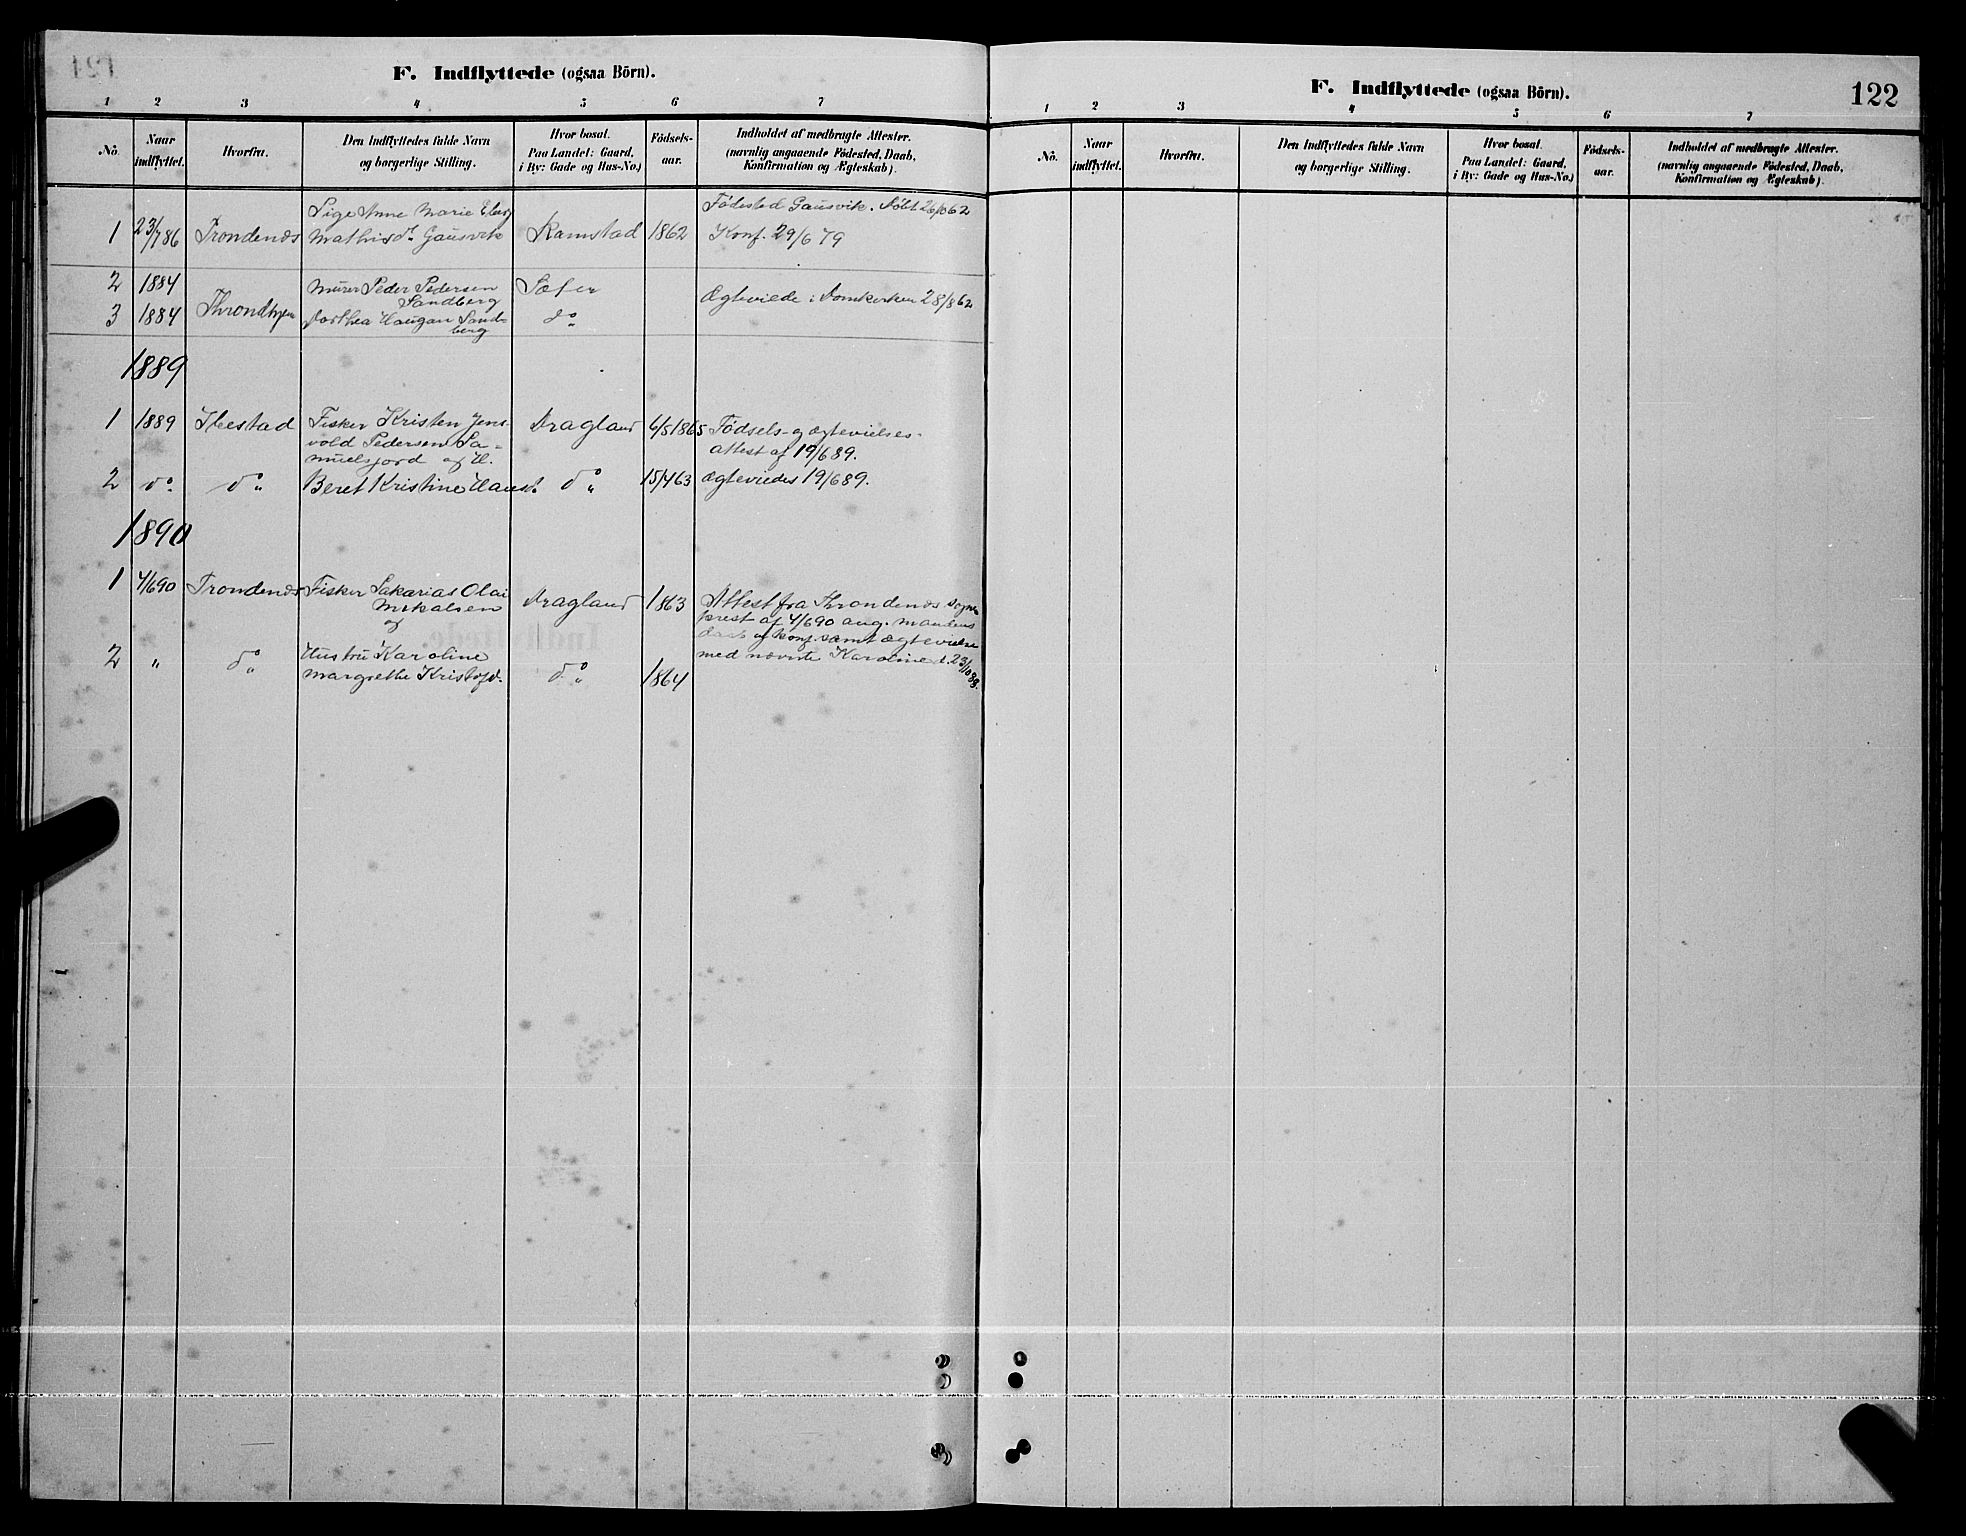 F. Indflyttede (ogsaa Börn).
1 2 3 4 5 6 7
No.
Naar indflyttet.
Hvorfra.
Den Indflyttedes fulde Navn
og borgerlige Stilling.
Hvor bosat.
Paa Landet: Gaard,
i By: Gade og Hus-No.)
Födsels-
aar.
Indholdet af medbragte Attester.
(navnlig angaaende Födested, Daab,
Konfirmation og Ægteskab).
Pige Anne Marie
Födested Gausvik. Döbt 26/10 62
1 23/7 86 Trondenæs Mathisdr Gausvik Ramstad 1862 Konf. 29/6 79
2 1884 Murer Peder Pedersen
Sandberg
Throndhjem
Ægteviede i Domkerken 28/8 62
3 1884 Dorthea Haugan Sand-
berg
do
1889
1 1889 Ibestad Fisker Kristen Jens-
vold Pedersen Sa-
muelsjord og H.
Dragland 6/5 1865 Födsels- og ægtevielses-
attest af 19/6 89.
2 do do Beret Kristine Hansd. do 15/4 63 ægteviedes 19/6 89.
1890
1 4/6 90 Trondenæs Fisker Sakarias Olai
Mikalsen
og
Dragland 1863 Attest fra Throndenæs Sogne-
prest af 4/6 90 ang. Mandens
daab og konf. samt ægtevielse
med nævnte Karoline d. 23/10 88.
2 " do Hustru Karoline
Margrethe Kristofd. do 1864
F. Indflyttede (ogsaa Börn).
122
1 2 3 4 5 6 7
No.
Naar
indflyttet.
Hvorfra.
Den Indflyttedes fulde Navn
og borgerlige Stilling.
Hvor bosat.
Paa Landet: Gaard,
i By: Gade og Hus-No.)
Födsels-
aar.
Indholdet af medbragte Attester.
(navnlig angaaende Födested, Daab,
Konfirmation og Ægteskab).